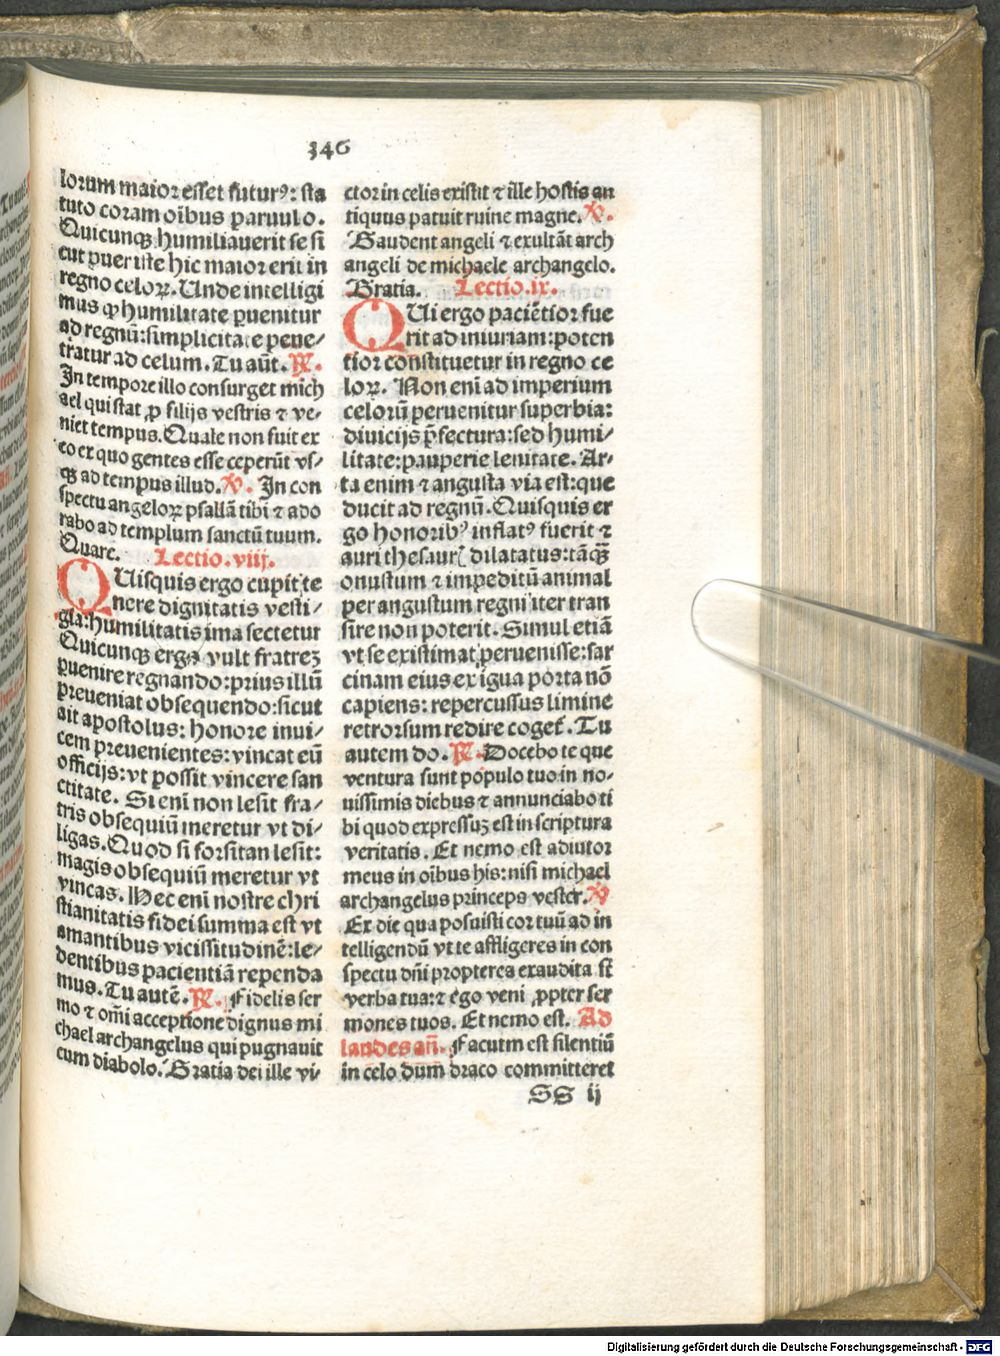 346
lorum maior esset futurꝰ: sta
tuto coram oībus ꝑuulo.
Quicunqꝫ humiliauerit se si
cut puer iste hic maior erit in
regno celoꝝ. Unde intelligi
mus ꝙ humilitate ꝑuenitur
ad regnū: simplicitate pene⸗
tratur ad celum. Tu aūt. ℟.
In tempore illo consurget mich
ael qui stat ꝓ filijs vestris ⁊ ve⸗
niet tempus. Quale non fuit ex
eo ex quo gentes esse ceperūt vs⸗
qꝫ ad tempus illud. ℣. In con
spectu angeloꝝ psallā tibi ⁊ ado
rabo ad templum sanctū tuum.
Quare. Lectio. viij.
QUisquis ergo cupit te
nere dignitatis vesti⸗
gia: humilitatis ima sectetur
Quicunqꝫ ergo vult fratreꝫ
ꝑuenire regnando: prius illū
preueniat obsequendo: sicut
ait apostolus: honore inui⸗
cem preuenientes: vincat eū
officijs: vt possit vincere san
ctitate. Si enī non lesit fra⸗
tris obsequiū meretur vt di⸗
ligas. Quod si forsitan lesit:
magis obsequiū meretur vt
vincas. Hec enī nostre chri
stianitatis fidei summa est vt
amantibus vicissitudinē: le⸗
dentibus pacientiā rependa
mus. Tu autē. ℟. Fidelis ser
mo ⁊ om̄i acceptione dignus mi
chael archangelus qui pugnauit
cum diabolo. Gratia dei ille vi⸗
ctor in celis existit ⁊ ille hostis an
tiquus patuit ruine magne. ℣.
Gaudent angeli ⁊ exultāt arch
angeli de michaele archangelo.
Gratia. Lectio. ix.
QUi ergo paciētior fue
rit ad iniuriam: poten
tior constituetur in regno ce
loꝝ. Non enī ad imperium
celorū peruenitur superbia:
diuicijs p̄fectura: sed humi⸗
litate: pauperie lenitate. Ar⸗
ta enim ⁊ angusta via est: que
ducit ad regnū. Quisquis er
go honoribꝰ inflatꝰ fuerit ⁊
auri thesaurꝭ dilatatus: tāqꝫ
onustum ⁊ impeditū animal
per angustum regni iter tran
sire non poterit. Simul etiā
vt se existimat peruenisse: sar
cinam eius exigua porta nō
capiens: repercussus limine
retrorsum redire coget᷑. Tu
autem do. ℟. Docebo te que
ventura sunt populo tuo in no⸗
uissimis diebus ⁊ annunciabo ti
bi quod expressuꝫ est in scriptura
veritatis. Et nemo est adiutor
meus in oībus his: nisi michael
archangelus princeps vester. ℣
Ex die qua posuisti cor tuū ad in
telligendū vt te affligeres in con
spectu dn̄i propterea exaudita st̄
verba tua: ⁊ ego veni ꝓpter ser
mones tuos. Et nemo est. Ad
laudes an̄. Facutm est silentiū
in celo dum draco committeret
SS ij
Digitalisierung gefördert durch die Deutsche Forschungsgemeinschaft - DFG